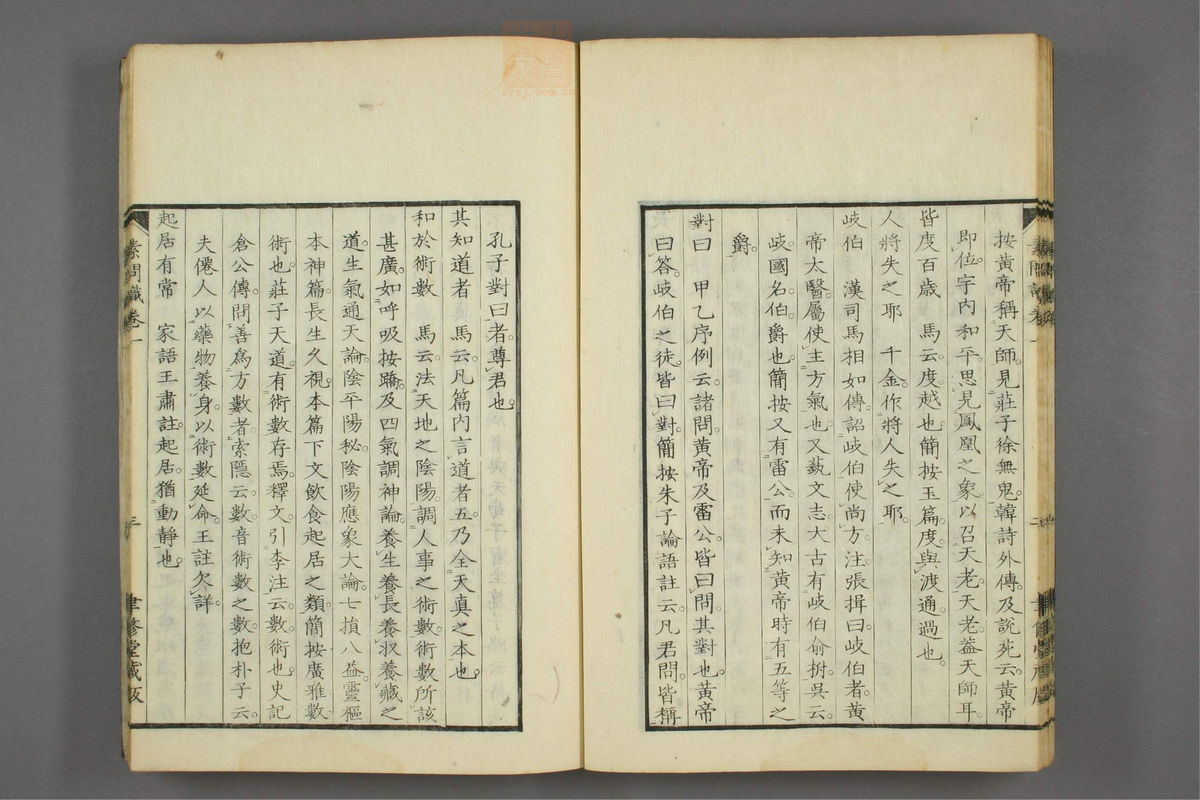 按黃帝稱天師見莊子徐無鬼韓詩外傳及說苑云黃帝
即位宇內和平思見鳳凰之象以召天老天老蓋天師耳
皆度百歲　馬云度越也簡按玉篇度與渡通過也
人將失之耶　千金作將人失之耶
岐伯　漢司馬相如傳詔岐伯使尚方注張揖曰岐伯者黃
帝太醫屬使主方氣也又藝文志大古有岐伯俞柎吳云
岐國名伯爵也簡按又有雷公而未知黃帝時有五等之
爵
對曰　甲乙序例云諸問黃帝及雷公皆曰問其對也黃帝
曰答岐伯之徒皆曰對簡按朱子論語註云凡君問皆稱
孔子對曰者尊君也
其知道者　馬云凡篇內言道者五乃全天真之本也
和於術數　馬云法天地之陰陽調人事之術數術數所該
甚廣如呼吸按蹻及四氣調神論養生養長養收養藏之
道生氣通天論陰平陽秘陰陽應象大論七損八益靈樞
本神篇長生久視本篇下文飲食起居之類簡按廣雅數
術也莊子天道有術數存焉釋文引李注云數術也史記
倉公傳問善為方數者索隱云數音術數之數抱朴子云
夫僊人以藥物養身以術數延命王註欠詳
起居有常　家語王肅註起居猶動靜也
素問識卷一
三
聿修堂藏板